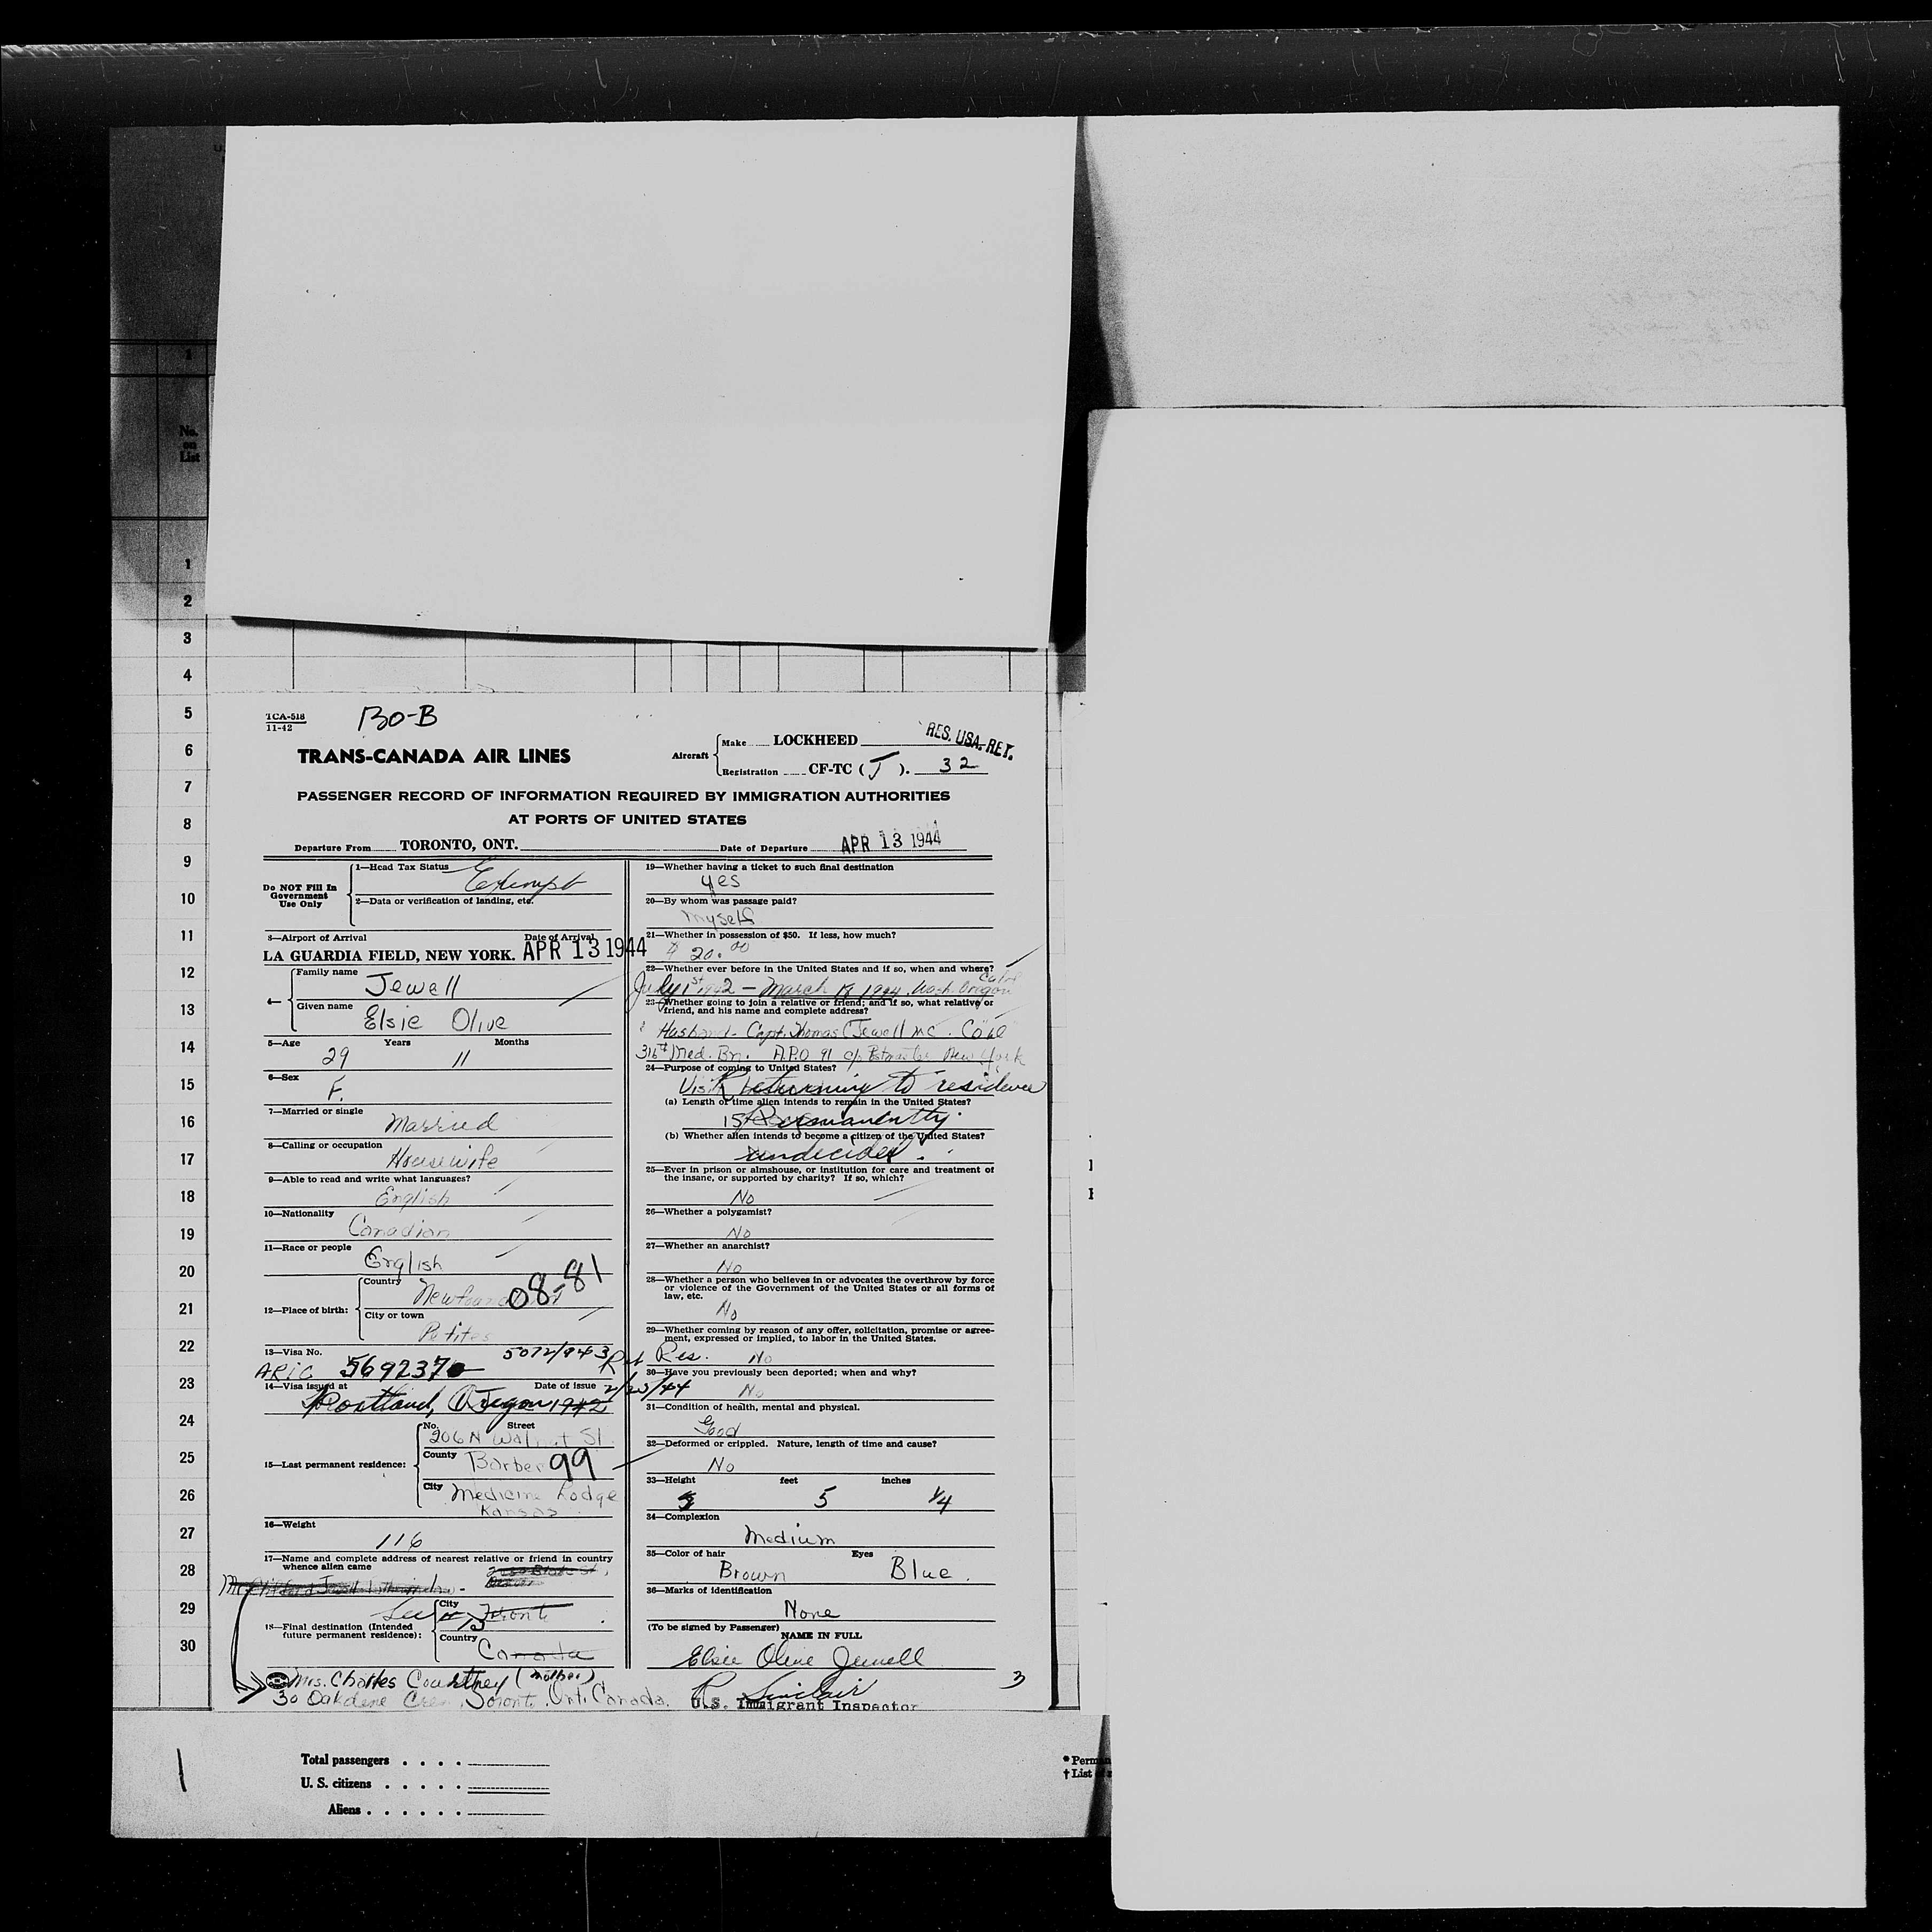 1
No.
on
List
1
2
3
4
5
6
7
8
9
10
11
12
13
14
15
16
17
18
19
20
21
22
23
24
25
26
27
28
29
30
TCA-518
11-42
BO-B
TRANS-CANADA AIR LINES
Aircraft
Make LOCKHEED
RES. USA. RET.
Registration CF-TC (J). 32
PASSENGER RECORD OF INFORMATION REQUIRED BY IMMIGRATION AUTHORITIES
AT PORTS OF UNITED STATES
Departure From TORONTO, ONT. Date of Departure APR 13 1944
Do NOT Fill In
Government
Use Only
1—Head Tax Status Exempt
2—Data or verification of landing, etc.
3—Airport of Arrival Date of Arrival
LA GUARDIA FIELD, NEW YORK. APR 13 1944
4—
Family name
Jewell
Given name
Elsie Olive
5—Age Years Months
29 11
6—Sex
F.
7—Married or single
Married
8—Calling or occupation
Housewife
9—Able to read and write what languages?
English
10—Nationality
Canadian
11—Race or people
English
12—Place of birth:
Country
Newfoundland 08-81
City or town
Petites
13—Visa No. 5072/943 Ret
ARIC 5692370
14—Visa issued at Date of issue 2/23/44
Portland, Oregon 1942
15—Last permanent residence:
No. Street
206 N Walnut St.
County Barber 99
City Medicine Lodge
Kansas
16—Weight
116
17—Name and complete address of nearest relative or friend in country
whence alien came
18—Final destination (Intended
future permanent residence):
City Toronto
See # 15
Country
Canada
Mrs. Charles Courtney (mother)
30 Oakdene Cres. Toronto, Ont. Canada.
19—Whether having a ticket to such final destination
yes
20—By whom was passage paid?
Myself
21—Whether in possession of $50. If less, how much?
$ 20.00
22—Whether ever before in the United States and if so, when and where?
July 1st 1942 — March 18 1944. Wash. Oregon Calif
23—Whether going to join a relative or friend; and if so, what relative or
friend, and his name and complete address?
Husband - Capt. Thomas C Jewell MC.
316th Med. Bn. A.P.O 91 c/o Postmaster New York
24—Purpose of coming to United States?
Visit Returning to residence
(a) Length of time alien intends to remain in the United States?
15 Permanently
(b) Whether alien intends to become a citizen of the United States?
undecided.
25—Ever in prison or almshouse, or institution for care and treatment of
the insane, or supported by charity? If so, which?
No
26—Whether a polygamist?
No
27—Whether an anarchist?
No
28—Whether a person who believes in or advocates the overthrow by force
or violence of the Government of the United States or all forms of
law, etc.
No
29—Whether coming by reason of any offer, solicitation, promise or agree-
ment, expressed or implied, to labor in the United States.
Res. No
30—Have you previously been deported; when and why?
No
31—Condition of health, mental and physical.
Good
32—Deformed or crippled. Nature, length of time and cause?
No
33—Height feet inches
5 5 1/4
34—Complexion
Medium
35—Color of hair Eyes
Brown Blue.
36—Marks of identification
None
(To be signed by Passenger)
NAME IN FULL
Elsie Olive Jewell
R. Sinclair
U.S. Immigrant Inspector
3
Total passengers . . . .
U. S. citizens . . . . .
Aliens . . . . . .
* Perm
† List